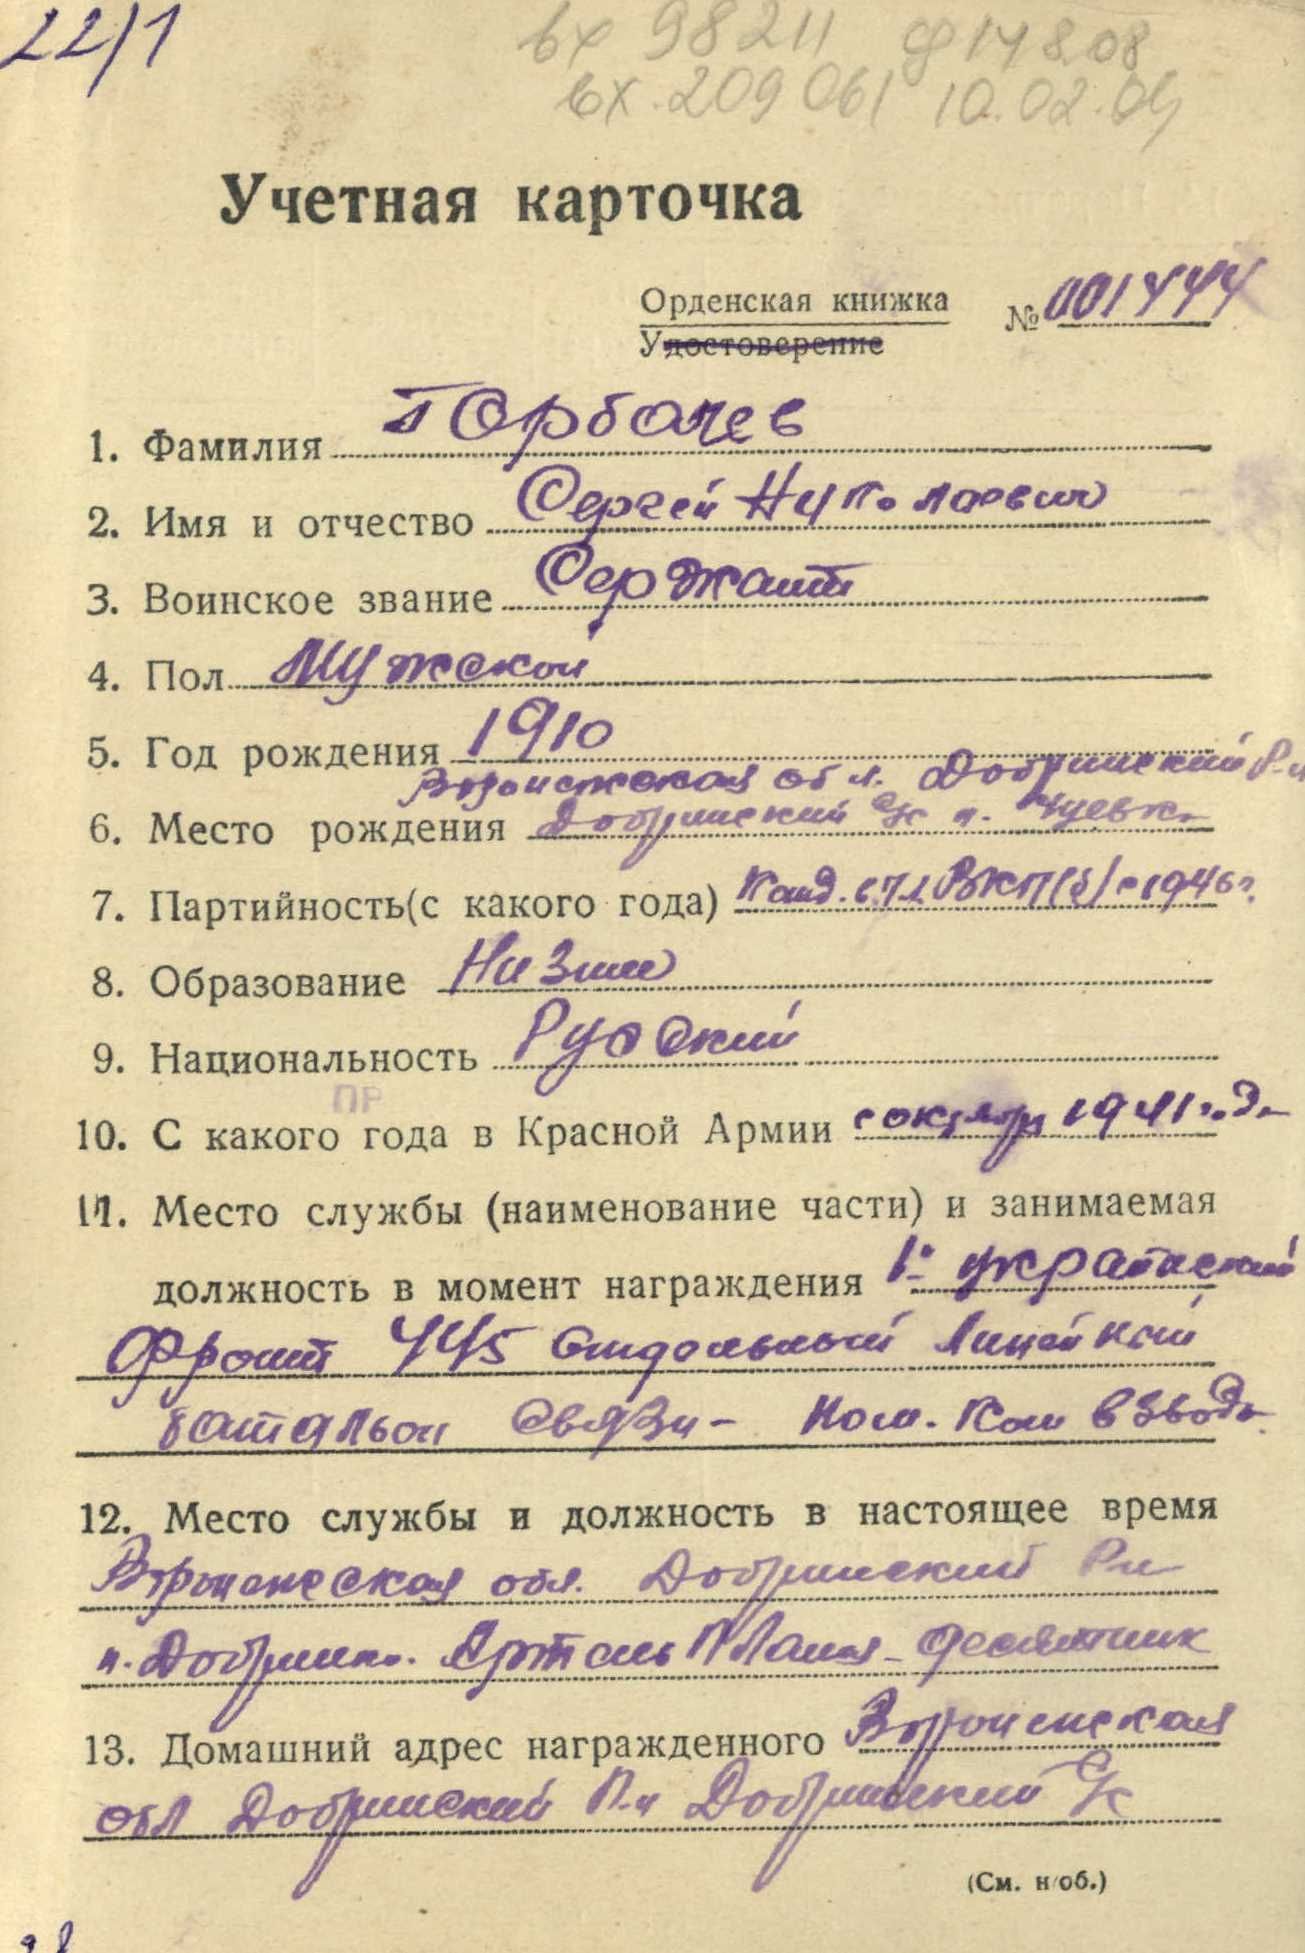 22/1
вх 98211 ф 14808
вх. 209061 10.02.09
Учетная карточка
Орденская книжка № 001444
Удостоверение
1. Фамилия Горбачев
2. Имя и отчество Сергей Николаевич
3. Воинское звание Сержант
4. Пол Мужской
5. Год рождения 1910
Воронежская обл. Добринский Р-н
6. Место рождения Добринский с/с
7. Партийность(с какого года) Канд. ВКП(б) с 1946 г.
8. Образование Низшее
9. Национальность Русский
ПР
10. С какого года в Красной Армии с октября 1941 года
11. Место службы (наименование части) и занимаемая
должность в момент награждения 1й украинский
Фронт 445 Отдельный Линейный
батальон Связи - пом. Ком взвода.
12. Место службы и должность в настоящее время
Воронежская обл. Добринский Р-н
п. Добринка. Артель - десятник
13. Домашний адрес награжденного Воронежская
обл Добринский Р-н Добринский с/с
(См. н/об.)